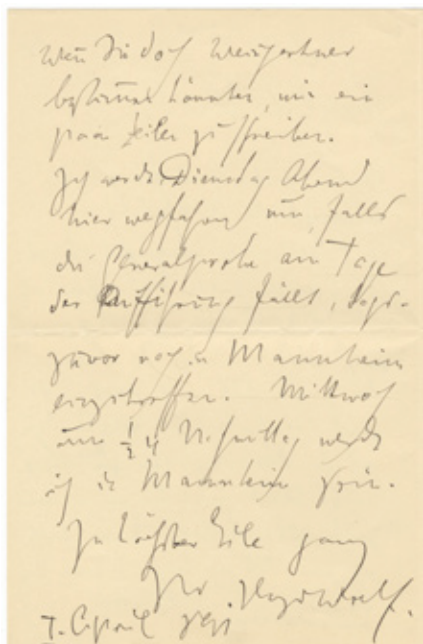 Wenn Sie doch Weingartner
bestimmen könnten, mir ein
paar Zeilen zu schreiben.
Ich werde Dienstag Abend
hier wegfahren um, falls
die Generalprobe am Tage
der Aufführung fällt, tags-
zuvor noch in Mannheim
einzutreffen. Mittwoch
um ½ 4 Nachmittag werde
ich in Mannheim sein.
In höchster Eile ganz
Ihr Hugo Wolf.
7. April 1891